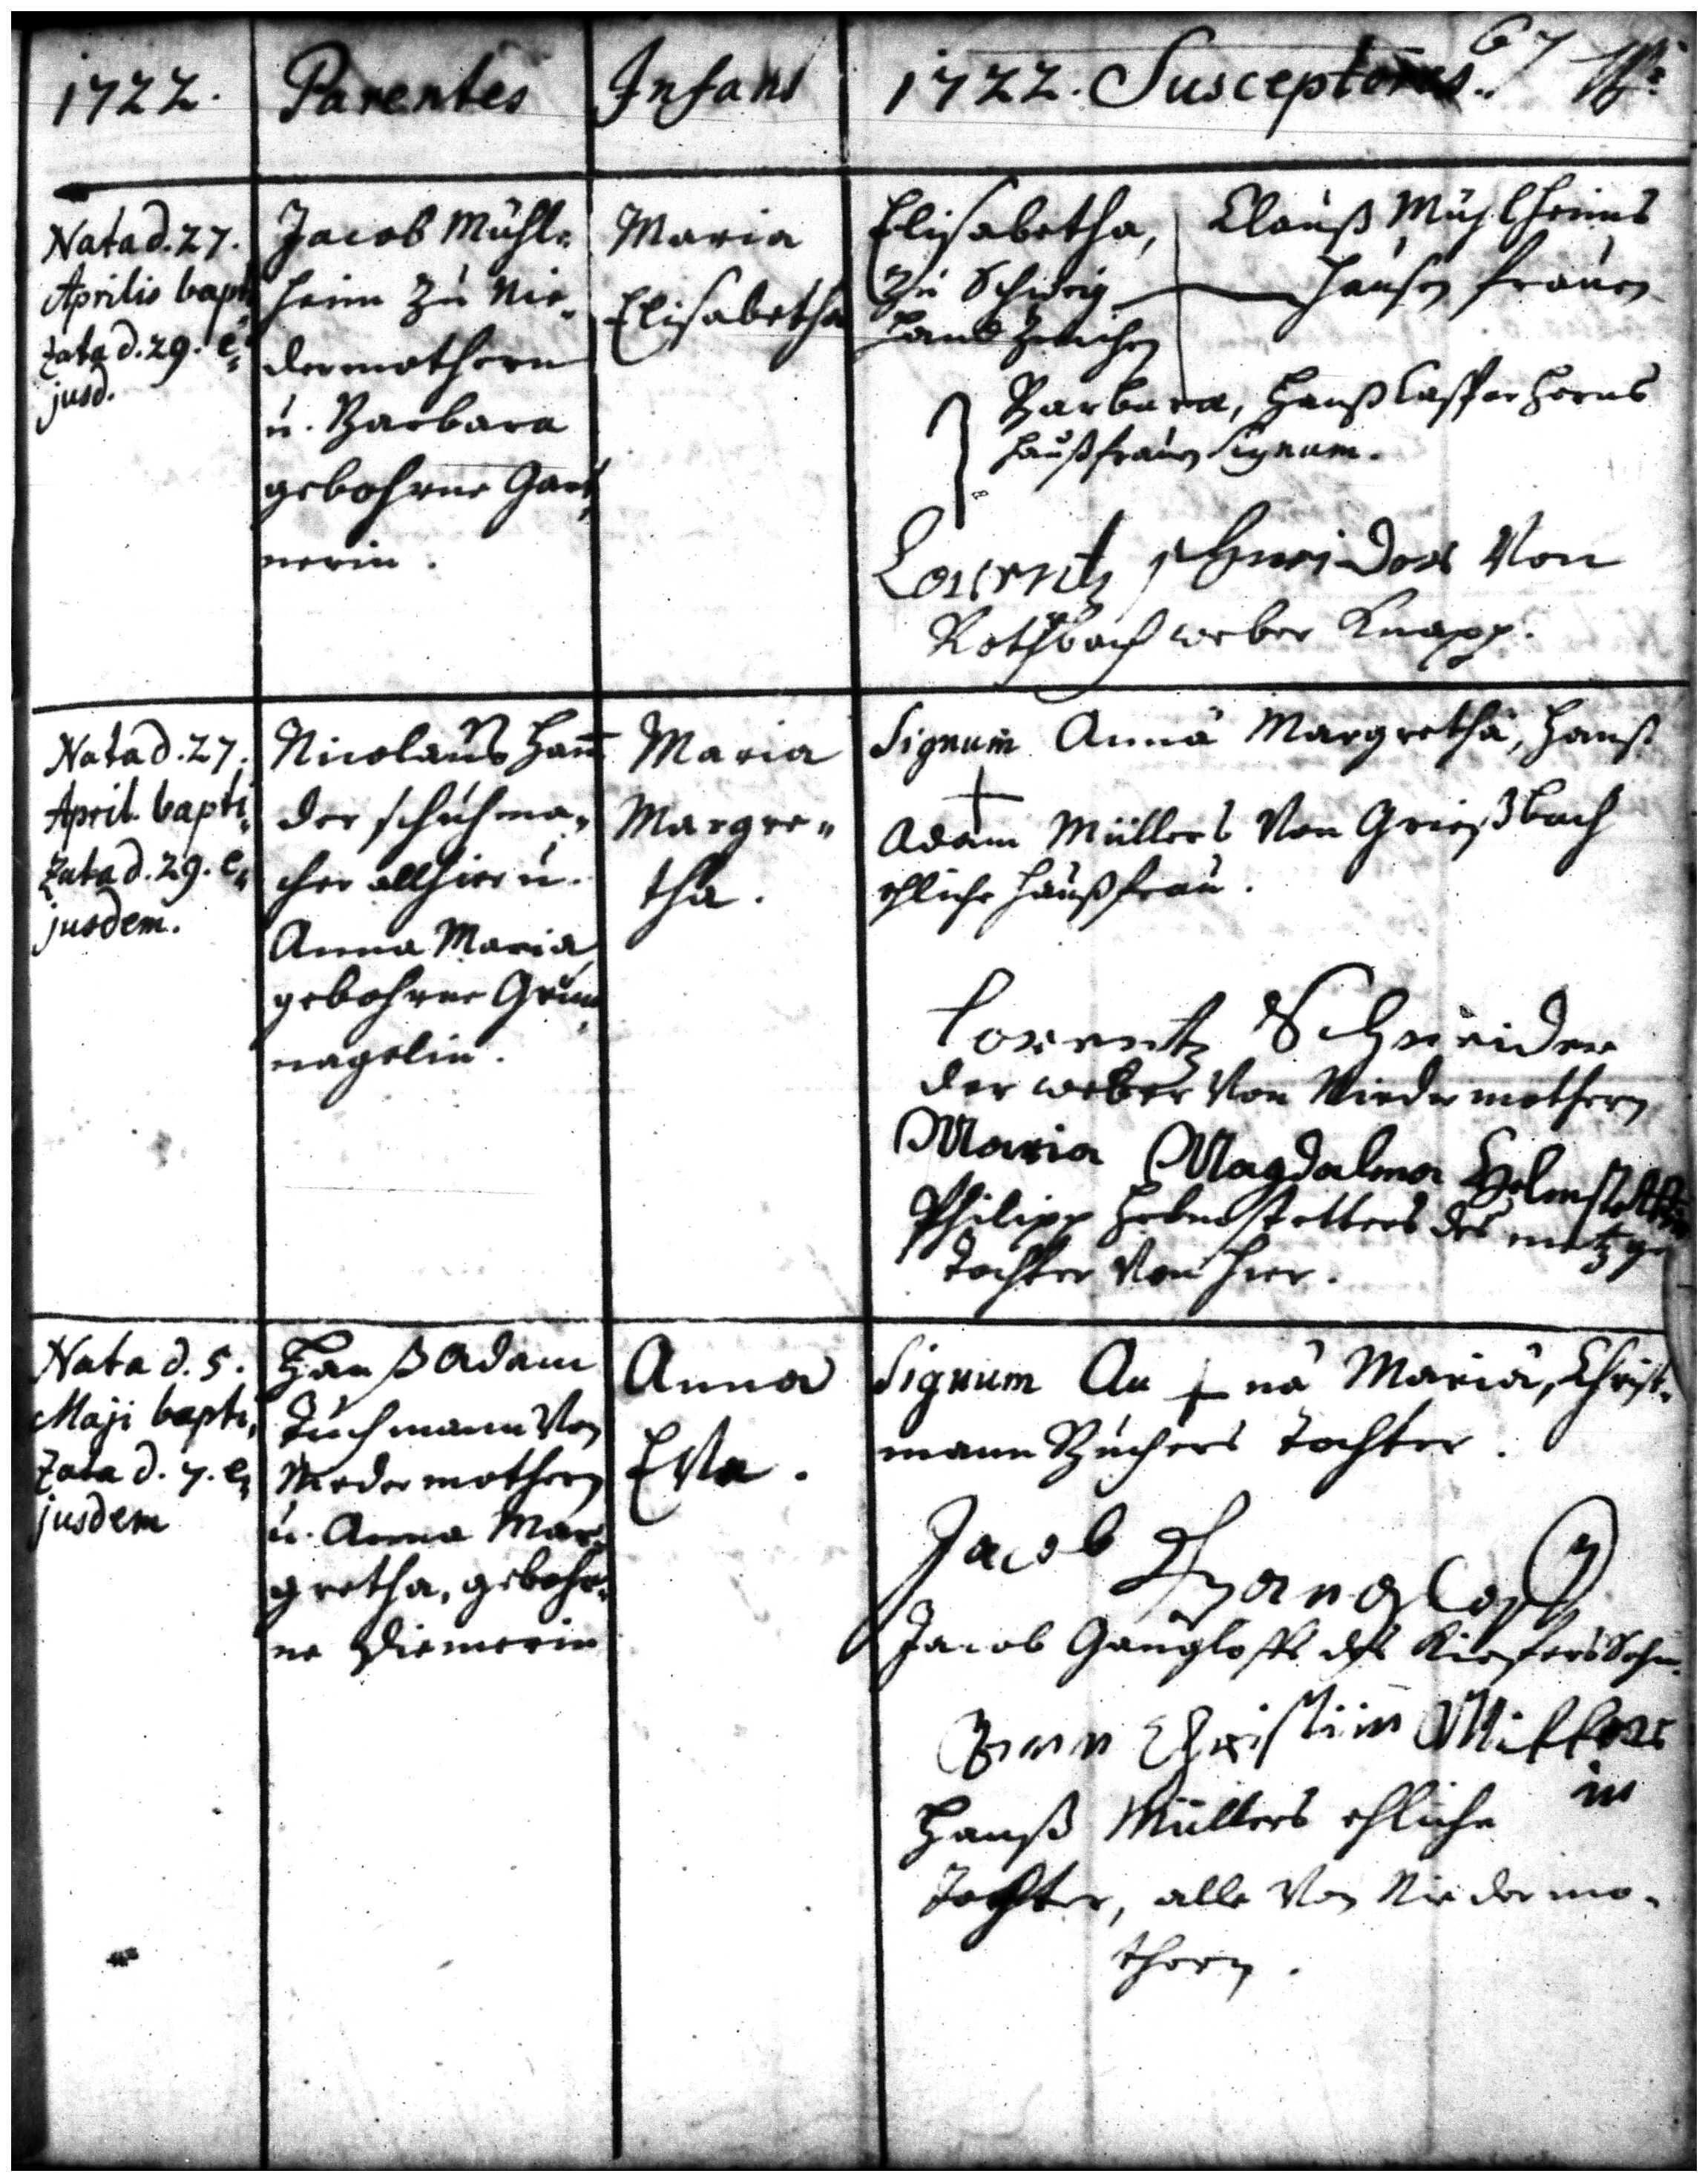 1722.
Parentes
Infans
1722. Susceptores.
67
Nata d. 27.
Aprilis bapti-
zata d. 29. e-
jusd.
Jacob Mühl-
heim zu Nie-
dermothern
u. Barbara
gebohrne Gart-
nerin.
Maria
Elisabetha
Elisabetha, Clauß Mühlheims
zu Schweig- haußen frauen
handzeichen
Barbara, Hanß Casper Herns
haußfrauen Signum.
Lorentz schneider Von
Rothbach weber Knapp.
Nata d. 27.
April. bapti-
zata d. 29. e-
jusdem.
Nicolaus Ham̄
der schuhma-
cher allhier u.
Anna Maria
gebohrne Grün-
nagelin.
Maria
Margre-
tha.
Signum Annä Margrethä, Hanß
Adam Müllers Von Grießbach
ehliche Haußfrau.
Lorentz Schneider
der weber Von Niedermothern
Maria Magdalena Helmstetterin
Philipp Helmstetters des metzgers
tochter Von hier.
Nata d. 5.
Maji bapti-
zata d. 7. e-
jusdem
Hanß Adam
Tuchmann Von
Niedermothern
u. Anna Mar-
gretha, gebohr-
ne Diemerin
Anna
Eva.
Signum An + nä Mariä, Christ-
mann Buchers tochter.
Jacob Gangloff
Jacob Gangloffs des Kiefers Sohn.
Anna Christina Miller
in
Hanß Müllers ehliche
Tochter, alle Von Niedermo-
thern.